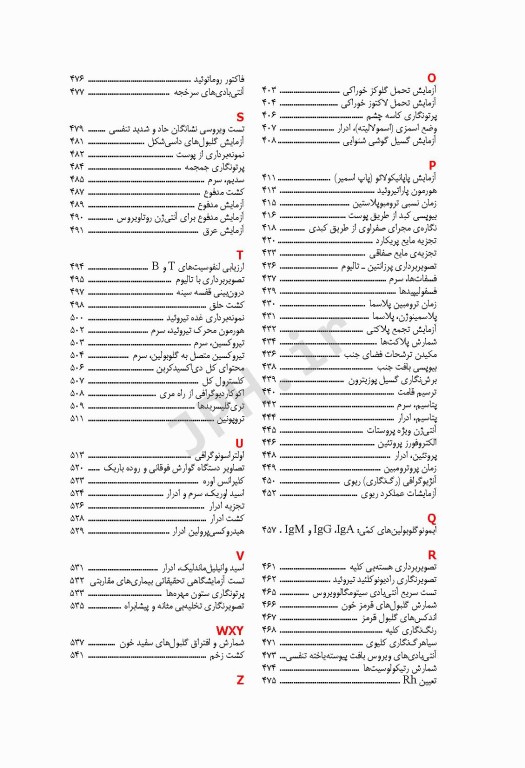 O
آزمایش تحمل گلوکز خوراکی ۴۰۳
آزمایش تحمل لاکتوز خوراکی ۴۰۴
پرتونگاری کاسه چشم ۴۰۶
وضع اسمزی (اسمولالیته)، ادرار ۴۰۷
آزمایش گسیل گوشی شنوایی ۴۰۸
P
آزمایش پاپانیکولائو (پاپ اسمیر) ۴۱۱
هورمون پاراتیروئید ۴۱۳
زمان نسبی ترومبوپلاستین ۴۱۵
بیوپسی کبد از طریق پوست ۴۱۶
نگاره‌ی مجرای صفراوی از طریق کبدی ۴۱۸
تجزیه مایع پریکارد ۴۲۰
تجزیه‌ی مایع صفاقی ۴۲۳
تصویربرداری پرزانتین ـ تالیوم ۴۲۶
فسفات‌ها، سرم ۴۲۷
فسفولیپیدها ۴۲۹
زمان ترومبین پلاسما ۴۳۰
پلاسمینوژن، پلاسما ۴۳۱
آزمایش تجمع پلاکتی ۴۳۲
شمارش پلاکت‌ها ۴۳۴
مکیدن ترشحات فضای جنب ۴۳۶
بیوپسی بافت جنب ۴۳۸
برش‌نگاری گسیل پوزیترون ۴۳۹
ترسیم قامت ۴۴۰
پتاسیم، سرم ۴۴۲
پتاسیم، ادرار ۴۴۴
آنتی‌ژن ویژه پروستات ۴۴۵
الکتروفورز پروتئین ۴۴۶
پروتئین، ادرار ۴۴۸
زمان پروترومبین ۴۴۹
آنژیوگرافی (رگ‌نگاری) ریوی ۴۵۰
آزمایشات عملکرد ریوی ۴۵۲
Q
ایمونوگلوبولین‌های کمّی: IgG ،IgA و IgM ۴۵۷
R
تصویربرداری هسته‌یی کلیه ۴۶۱
تصویرنگاری رادیونوکلئید تیروئید ۴۶۲
تست سریع آنتی‌بادی سیتومگالوویروس ۴۶۵
شمارش گلبول‌های قرمز خون ۴۶۶
اندکس‌های گلبول قرمز ۴۶۷
رنگ‌نگاری کلیه ۴۶۸
سیاهرگ‌نگاری کلیوی ۴۷۱
آنتی‌بادی‌های ویروس بافت پیوسته‌یاخته تنفسی ۴۷۳
شمارش رتیکولوسیت‌ها ۴۷۴
تعیین Rh ۴۷۵
فاکتور روماتوئید ۴۷۶
آنتی‌بادی‌های سرخجه ۴۷۷
S
تست ویروسی نشانگان حاد و شدید تنفسی ۴۷۹
آزمایش گلبول‌های داسی‌شکل ۴۸۱
نمونه‌برداری از پوست ۴۸۲
پرتونگاری جمجمه ۴۸۴
سدیم، سرم ۴۸۵
کشت مدفوع ۴۸۷
آزمایش مدفوع ۴۸۹
آزمایش مدفوع برای آنتی‌ژن روتاویروس ۴۹۰
آزمایش عرق ۴۹۱
T
ارزیابی لنفوسیت‌های T و B ۴۹۴
تصویربرداری با تالیوم ۴۹۵
درون‌بینی قفسه سینه ۴۹۷
کشت حلق ۴۹۸
نمونه‌برداری غده تیروئید ۵۰۰
هورمون محرک تیروئید، سرم ۵۰۲
تیروکسین، سرم ۵۰۳
تیروکسین متصل به گلوبولین، سرم ۵۰۴
محتوای کل دی‌اکسیدکربن ۵۰۶
کلسترول کل ۵۰۷
اکوکاردیوگرافی از راه مری ۵۰۸
تری‌گلیسریدها ۵۰۹
تروپونین ۵۱۱
U
اولتراسونوگرافی ۵۱۳
تصاویر دستگاه گوارش فوقانی و روده باریک ۵۲۰
کلیرانس اوره ۵۲۳
اسید اوریک، سرم و ادرار ۵۲۴
تجزیه ادرار ۵۲۶
کشت ادرار ۵۲۸
هیدروکسی‌پرولین ادرار ۵۲۹
V
اسید وانیلیل‌ماندلیک، ادرار ۵۳۱
تست آزمایشگاهی تحقیقاتی بیماری‌های مقاربتی ۵۳۲
پرتونگاری ستون مهره‌ها ۵۳۳
تصویرنگاری تخلیه‌یی مثانه و پیشابراه ۵۳۵
WXY
شمارش و افتراق گلبول‌های سفید خون ۵۳۷
کشت زخم ۵۴۱
Z